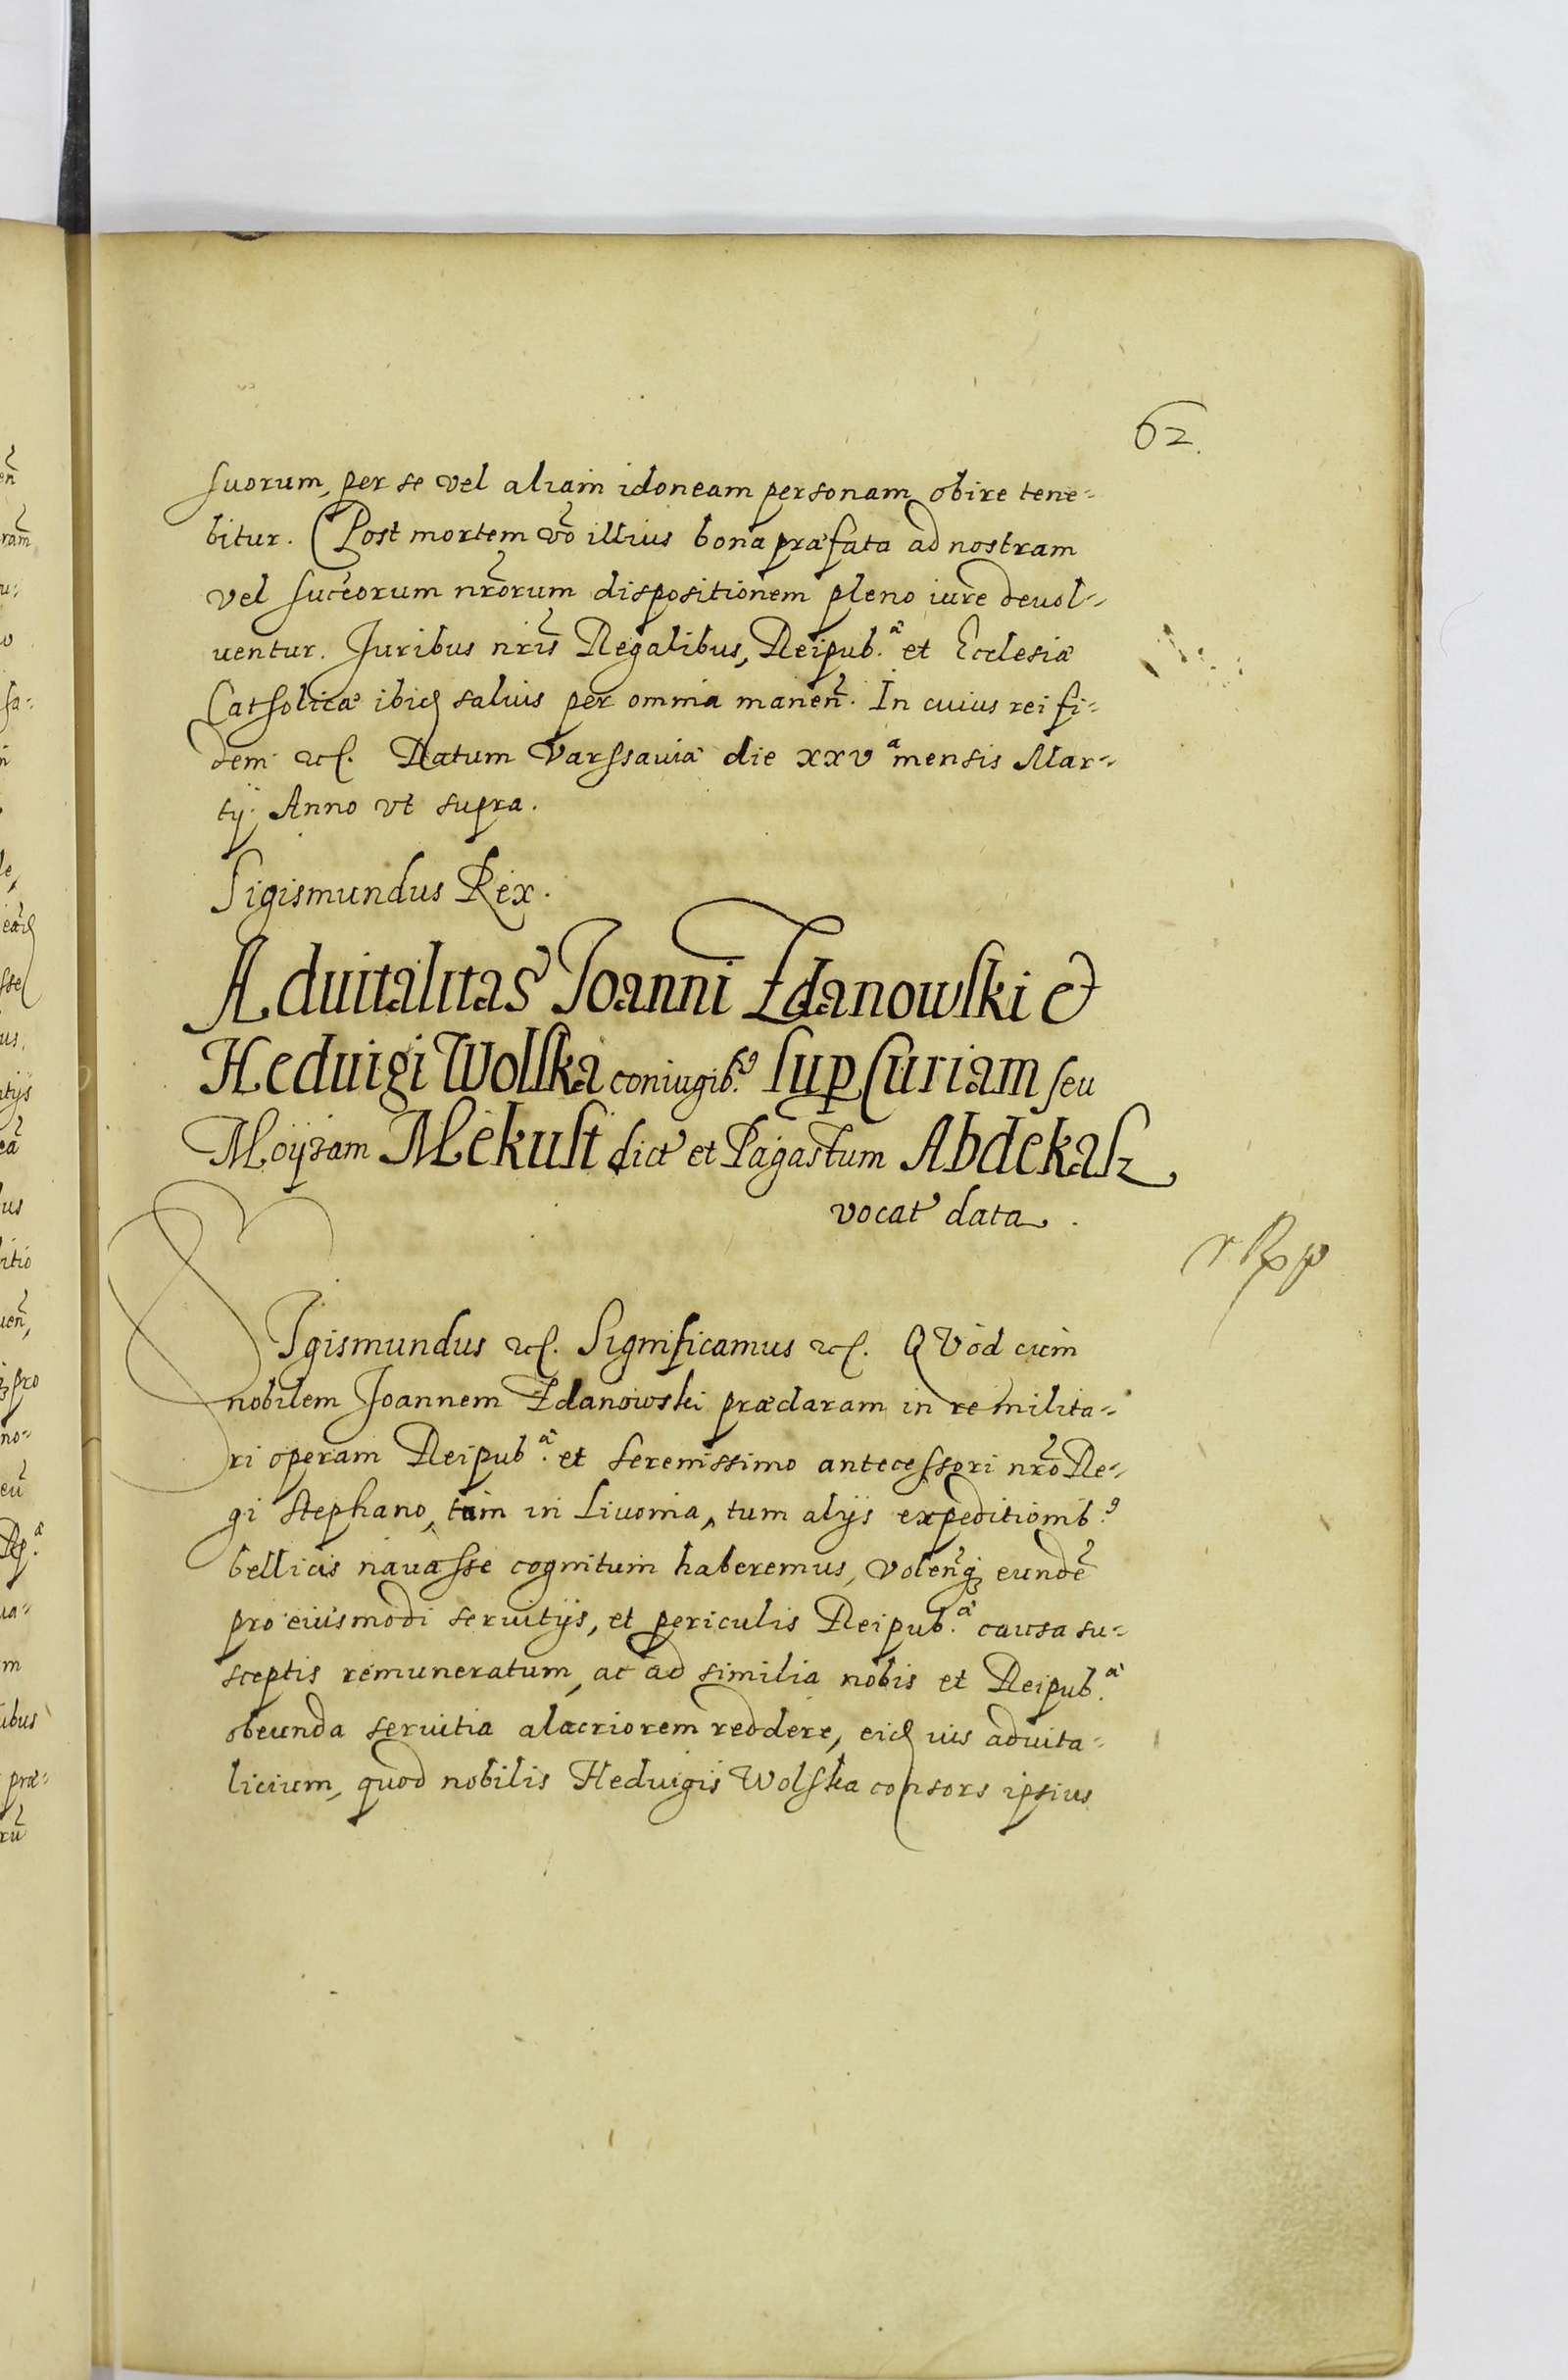 62.
suorum, per se vel aliam idoneam personam obire tene=
bitur. Post mortem vō illius bona præfata ad nostram
vel succ̄orum nr̄orum dispositionem pleno iure deuol=
uentur. Juribus nr̄is Regalibus, Reipub.ᵃᵉ et Ecclesiæ
Catholicæ ibid saluis per omnia manen̄. In cuius rei fi=
dem etc. Datum Varssauiæ die xxvᵃ mensis Mar=
tij. Anno vt supra.
Sigismundus Rex.
Aduitalitas Joanni Zdanowski et
Heduigi Wolska coniugib. sup curiam seu
Moyzam Mekust dict et Pagastum Abdekasz
vocat data.
r Rpp
SIgismundus etc. Significamus etc. QVod cum
nobilem Joannem Zdanowski præclaram in re milita=
ri operam Reipub.ᵃᵉ et serenissimo antecessori nr̄o Re=
gi Stephano, tam in Liuonia, tum alijs expeditionib.⁹
bellicis nauasse cognitum haberemus, volen̄q eundē
pro eiusmodi seruitijs, et periculis Reipub.ᵃᵉ causa su=
sceptis remuneratum, ac ad similia nobis et Reipub.ᵃᵉ
obeunda seruitia alacriorem reddere, eid ius aduita=
licium, quod nobilis Heduigis Wolska consors ipsius